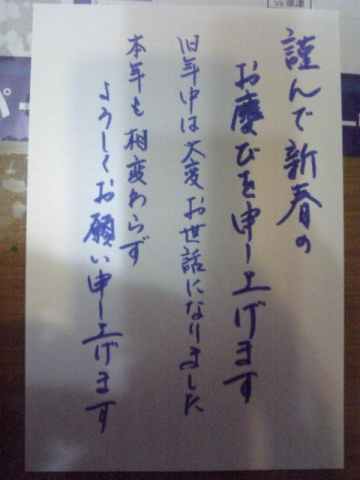 謹んで新春の
お慶びを申し上げます
旧年中は大変お世話になりました
本年も相変わらず
ようしくお願い申し上げます
vs 草津